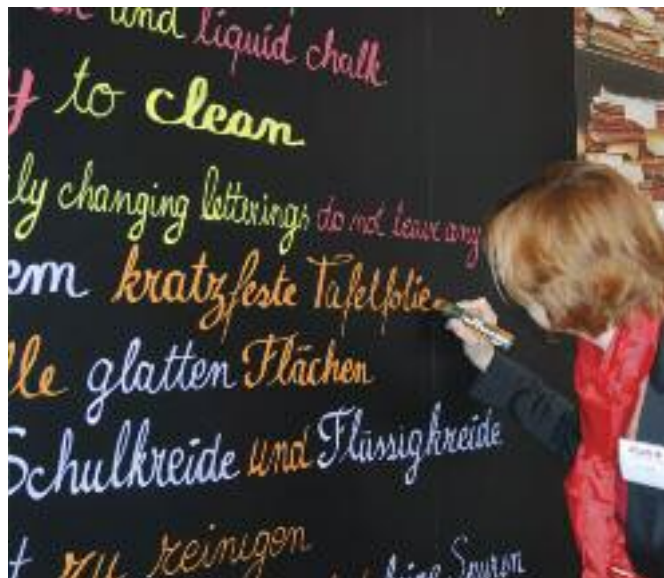 und liquid chalk
y to clean
ily changing letterings do not leave any
em kratzfeste Tafelfolie
lle glatten Flächen
Schulkreide und Flüssigkreide
t zu reinigen
keine Spuren